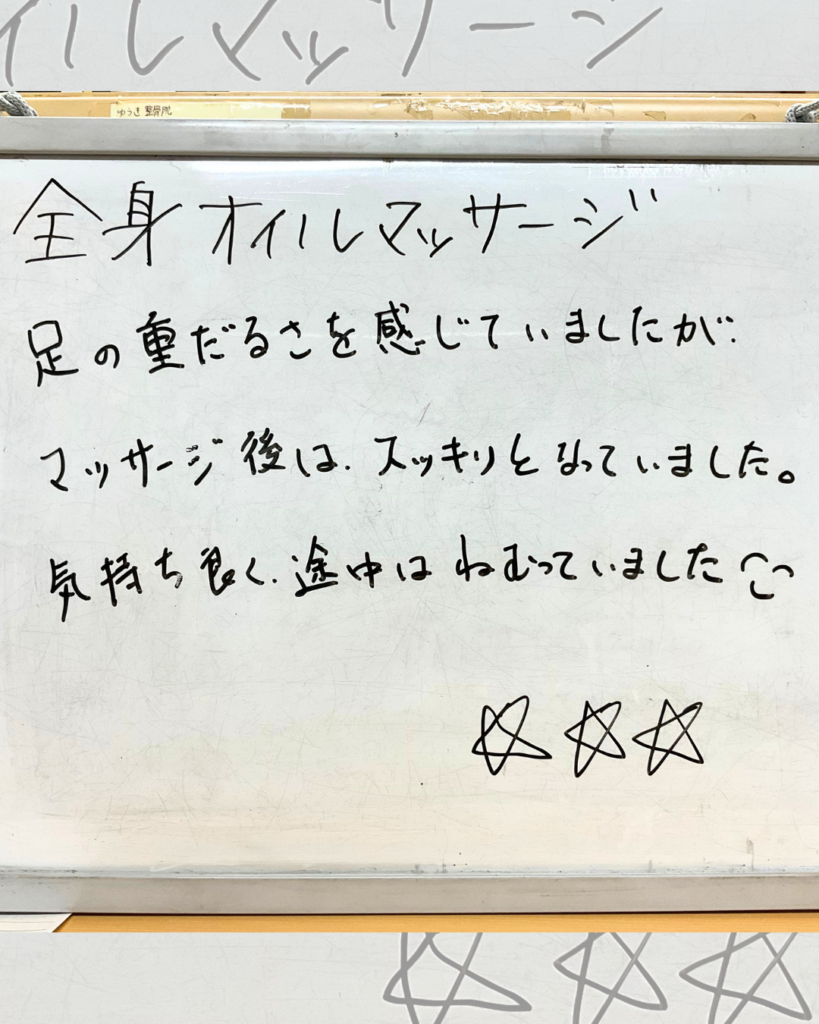 イルマッサージ
ゆうき整骨院
全身オイルマッサージ
足の重だるさを感じていましたが、
マッサージ後は、スッキリとなっていました。
気持ち良く、途中はねむっていました